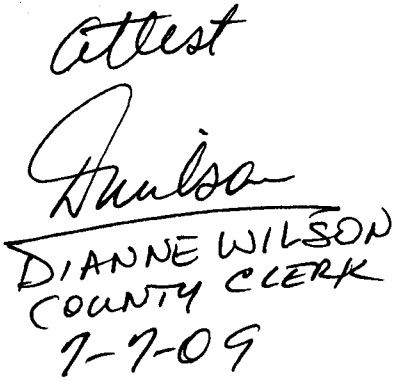 attest
DWilson
DIANNE WILSON
COUNTY CLERK
7-7-09